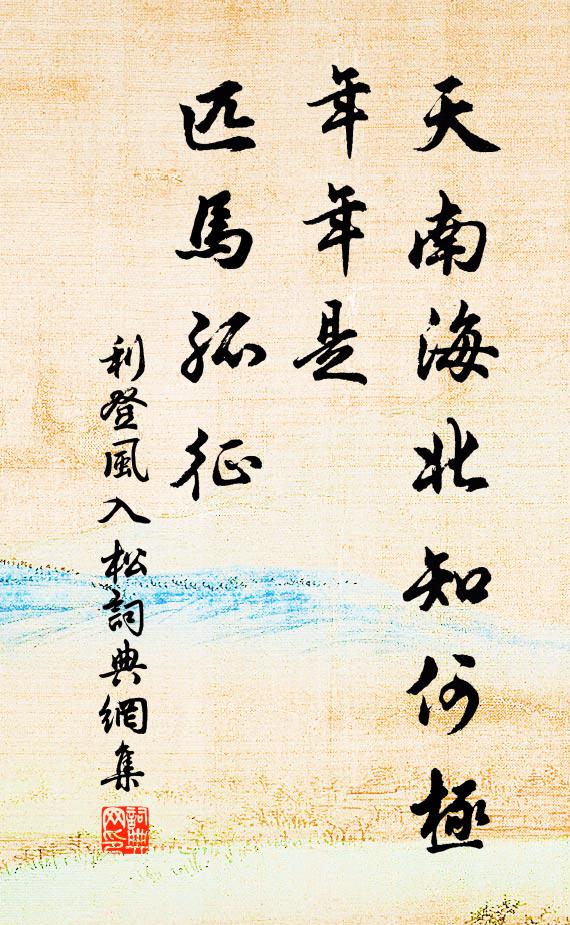 天南海北知何極
年年是
匹馬孤征
利登風入松詞典網集
詞典網印